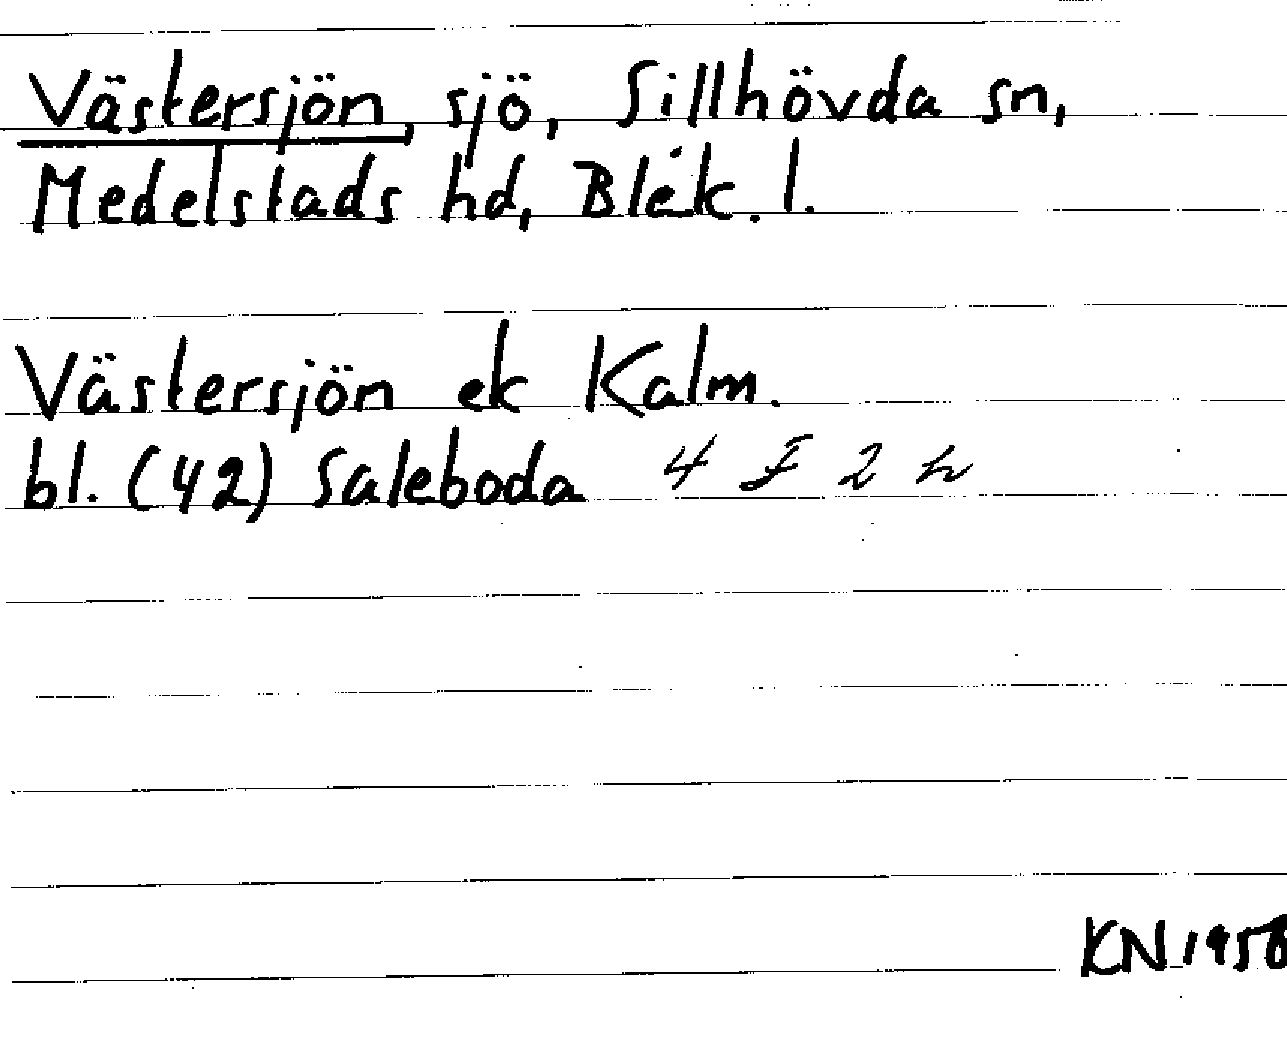 Västersjön, sjö, Sillhövda sn,
Medelstads hd, Blek. l.
Västersjön ek Kalm.
bl. (42) Saleboda 4 F 2 h
KN 1958